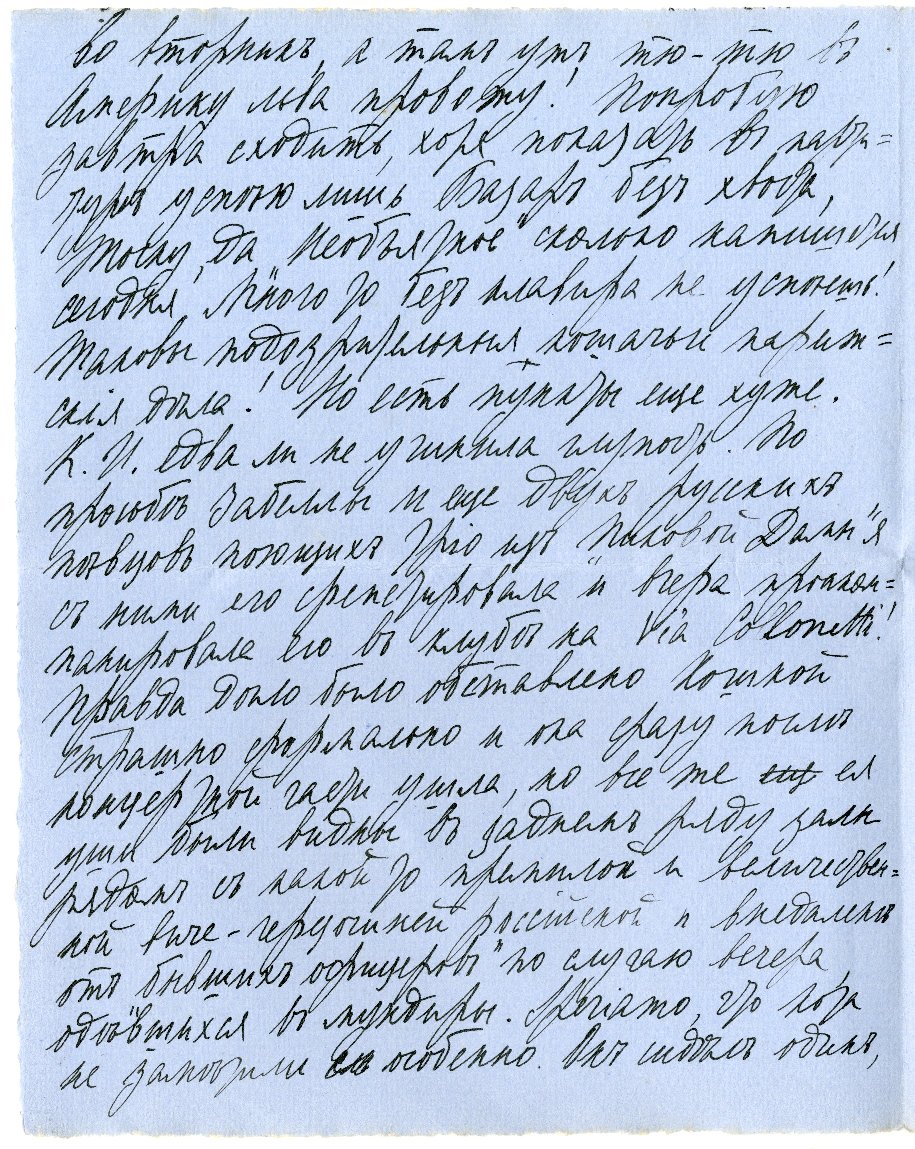 во вторникъ, а тамъ ужъ тю-тю въ
Америку льва провожу! Попробую
завтра сходить, хотя показать въ
успѣю лишь Базаръ безъ хвоста,
Тоску, да "Необъятное" сколько напишется
сегодня. Много то безъ клавира не успѣешь!
Таковы подозрительныя, кошачьи париж=
скія дѣла! Но есть пункты еще хуже.
К. И. едва ли не учинила глупость. По
просьбѣ Забеллы и еще двухъ русскихъ
пѣвцовъ поющихъ тріо изъ "Пиковой Дамы" я
съ ними его срепетировала и вчера проакком=
панировала его въ клубѣ на Via Collonetti!
Правда дѣло было обставлено Кошкой
страшно формально и она сразу послѣ
концертной части ушла, но все же ея
уши были видны въ заднемъ ряду залы
рядомъ съ какой то премилой и величествен=
ной виче-герцогиней россійской и внедалекѣ
отъ бывшихъ офицеровъ "по случаю вечера
одѣвшихся въ мундиры. Speriamo, что кота
не замѣтили особенно. Онъ сидѣлъ одинъ,